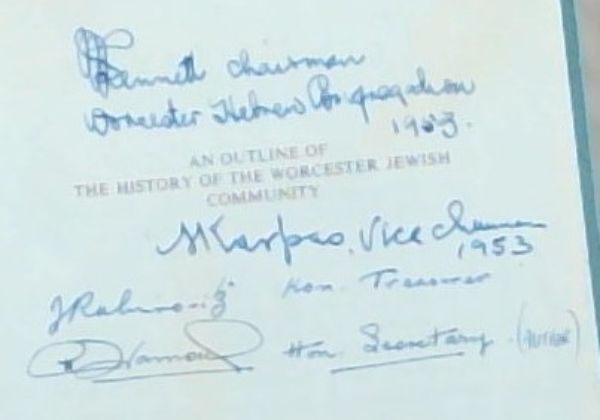 chairman
Worcester Hebrew Congregation
1953.
AN OUTLINE OF
THE HISTORY OF THE WORCESTER JEWISH
COMMUNITY
M Karpas, Vice Chairman
1953
J Rabinowitz Hon. Treasurer
Hon. Secretary. (AUTHOR)